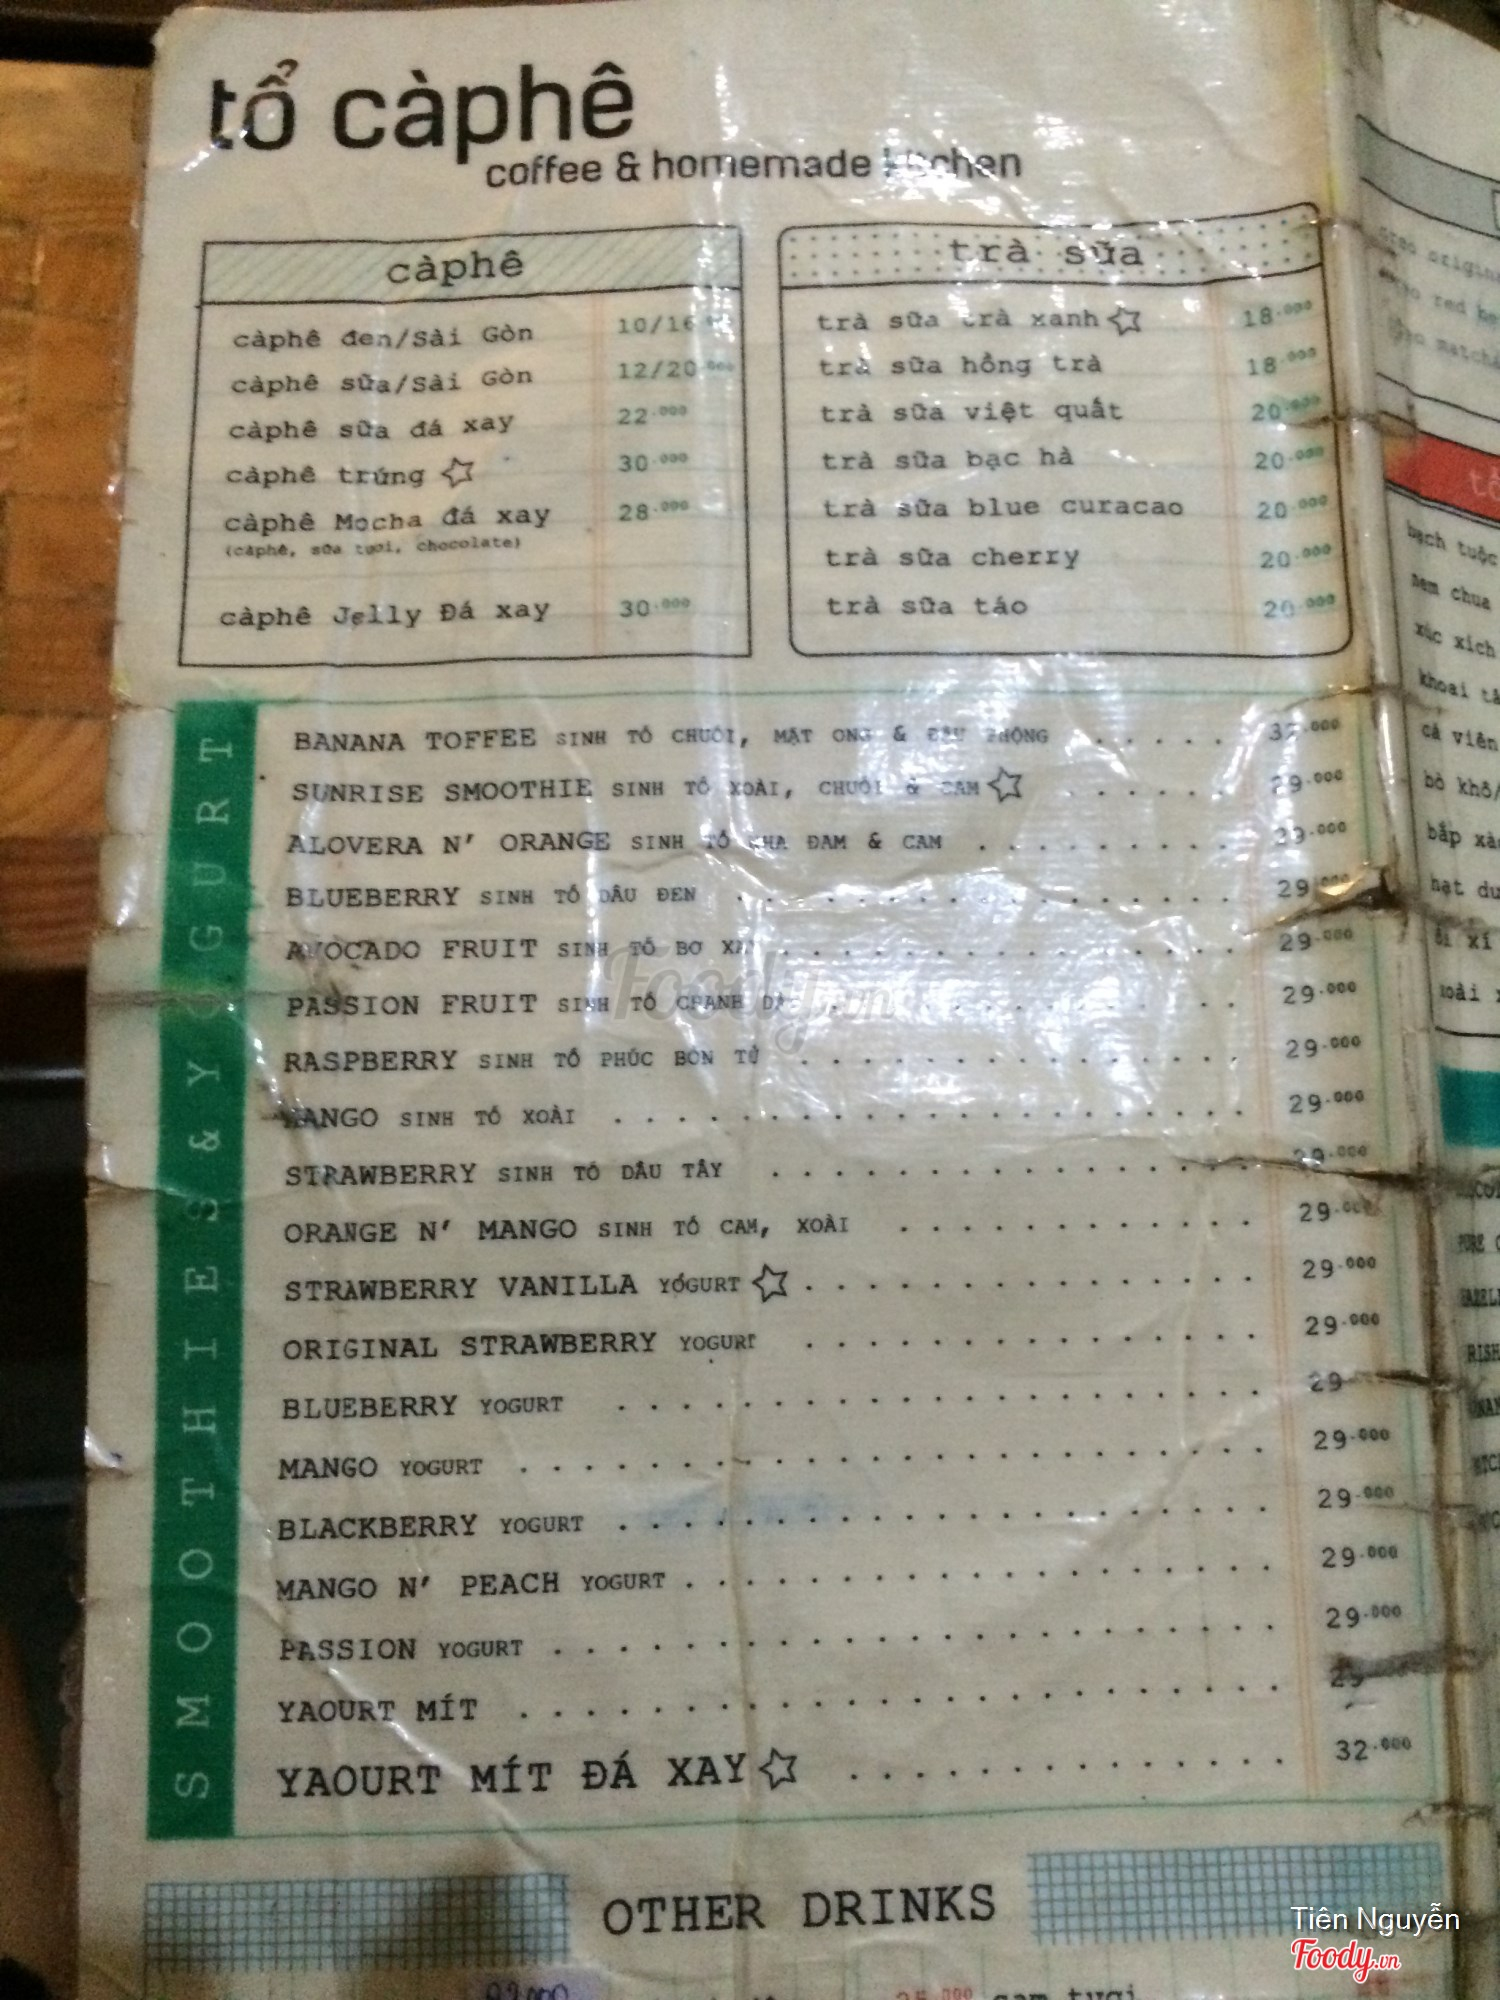 tổ càphê
coffee & homemade kitchen
càphê
càphê đen/Sài Gòn 10/16
càphê sữa/Sài Gòn 12/20.000
càphê sữa đá xay 22.000
càphê trứng 30.000
càphê Mocha đá xay 28.000
(càphê, sữa tươi, chocolate)
càphê Jelly Đá xay 30.000
trà sữa
trà sữa trà xanh 18.000
trà sữa hồng trà 18.000
trà sữa việt quất 20.000
trà sữa bạc hà 20.000
trà sữa blue curacao 20.000
trà sữa cherry 20.000
trà sữa táo 20.000
SMOOTHIES & YOGURT
BANANA TOFFEE SINH TỐ CHUỐI, MẬT ONG & ĐẬU PHỘNG . . . . .
SUNRISE SMOOTHIE SINH TỐ XOÀI, CHUỐI & CAM . . . . . . 29.000
ALOVERA N' ORANGE SINH TỐ NHA ĐAM & CAM . . . . . . . . 29.000
BLUEBERRY SINH TỐ DÂU ĐEN . . . . . . . . . . . . . . . . 29.000
AVOCADO FRUIT SINH TỐ BƠ XAY . . . . . . . . . . . . . . 29.000
PASSION FRUIT SINH TỐ CHANH DÂY . . . . . . . . . . . . . 29.000
RASPBERRY SINH TỐ PHÚC BỒN TỬ . . . . . . . . . . . . . . 29.000
MANGO SINH TỐ XOÀI . . . . . . . . . . . . . . . . . . . . 29.000
STRAWBERRY SINH TỐ DÂU TÂY . . . . . . . . . . . . . . . 29.000
ORANGE N' MANGO SINH TỐ CAM, XOÀI . . . . . . . . . . . 29.000
STRAWBERRY VANILLA YOGURT . . . . . . . . . . . . . . 29.000
ORIGINAL STRAWBERRY YOGURT . . . . . . . . . . . . . . 29.000
BLUEBERRY YOGURT . . . . . . . . . . . . . . . . . . . . 29
MANGO YOGURT . . . . . . . . . . . . . . . . . . . . . . . 29.000
BLACKBERRY YOGURT . . . . . . . . . . . . . . . . . . . . 29.000
MANGO N' PEACH YOGURT . . . . . . . . . . . . . . . . . . 29.000
PASSION YOGURT . . . . . . . . . . . . . . . . . . . . . . 29.000
YAOURT MÍT . . . . . . . . . . . . . . . . . . . . . . . . 29
YAOURT MÍT ĐÁ XAY . . . . . . . . . . . . . . 32.000
OTHER DRINKS
25.000 cam tươi
bạch tuộc
nem chua
xúc xích
khoai
cá viên
bò khô/
bắp xào
Foody.vn
Tiên Nguyễn
Foody.vn